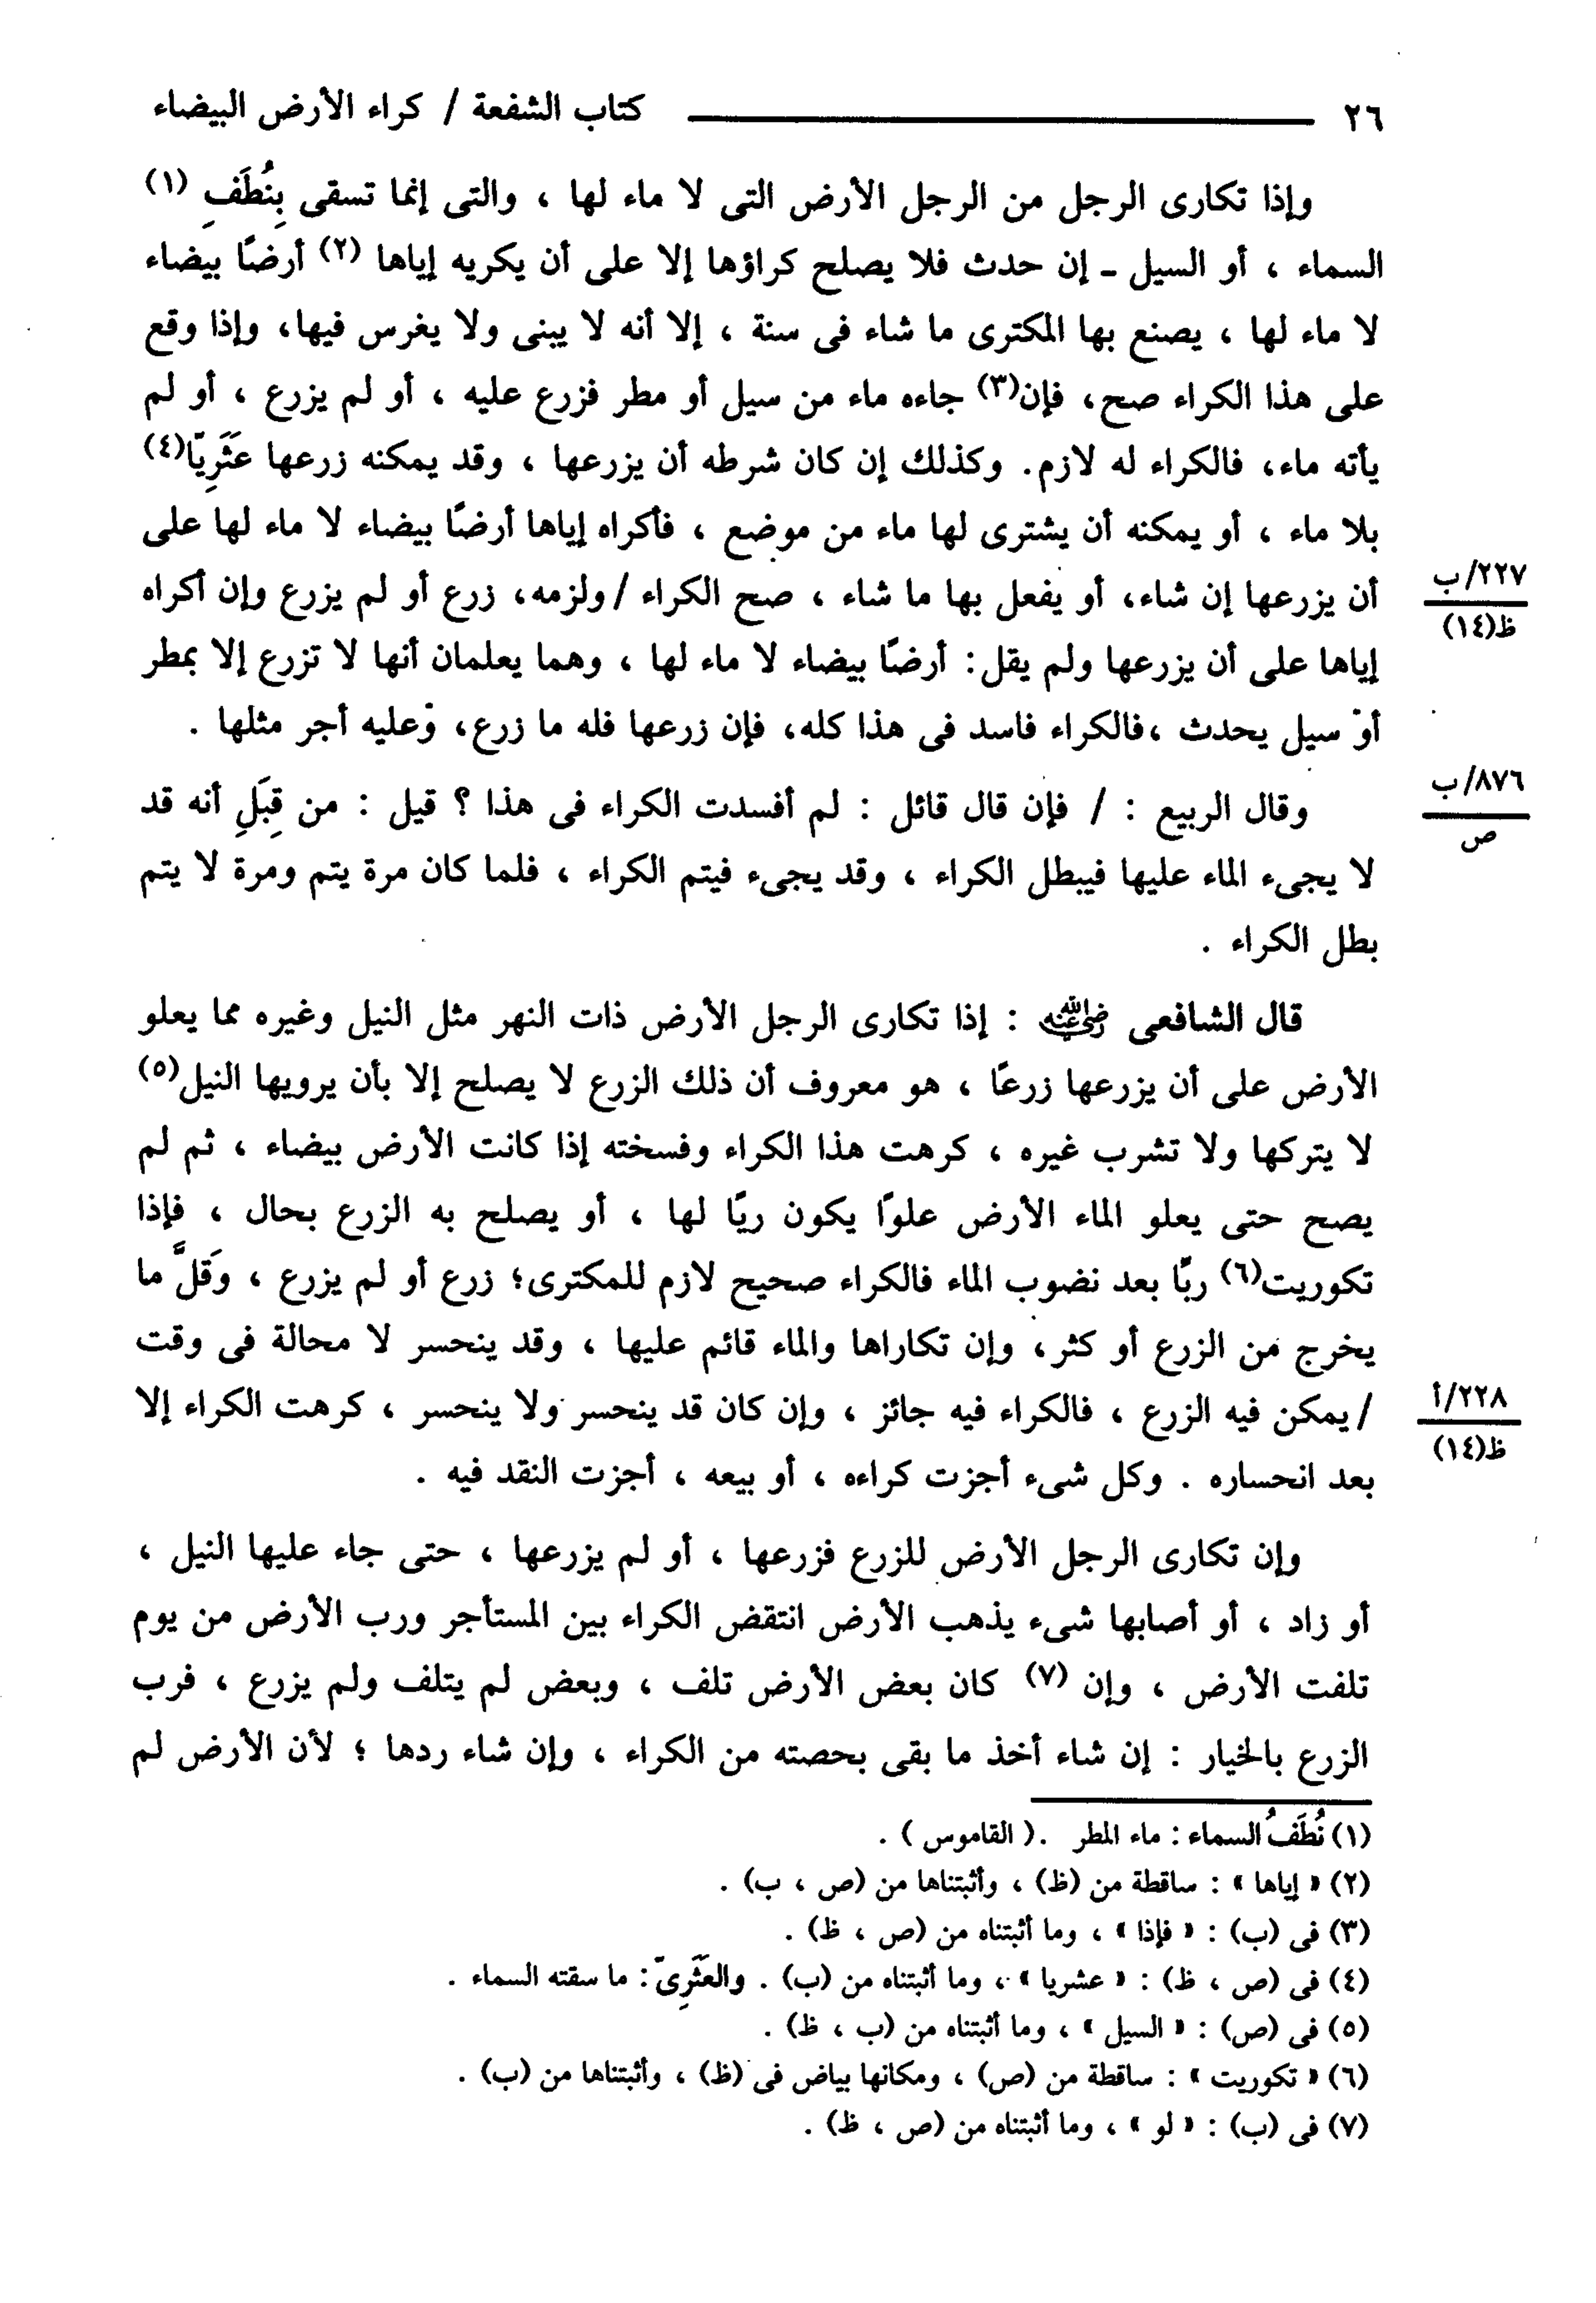 ٢٦ كتاب الشفعة / كراء الأرض البيضاء
وإذا تكارى الرجل من الرجل الأرض التى لا ماء لها ، والتى إنما تسقى بِنُطَفِ (١)
السماء ، أو السيل ـ إن حدث فلا يصلح كراؤها إلا على أن يكريه إياها (٢) أرضًا بيضاء
لا ماء لها ، يصنع بها المكترى ما شاء فى سنة ، إلا أنه لا يبنى ولا يغرس فيها، وإذا وقع
على هذا الكراء صح، فإن(٣) جاءه ماء من سيل أو مطر فزرع عليه ، أو لم يزرع ، أو لم
يأته ماء، فالكراء له لازم. وكذلك إن كان شرطه أن يزرعها ، وقد يمكنه زرعها عَثَرِيّا(٤)
بلا ماء ، أو يمكنه أن يشترى لها ماء من موضع ، فأكراه إياها أرضًا بيضاء لا ماء لها على
أن يزرعها إن شاء، أو يفعل بها ما شاء ، صح الكراء /ولزمه، زرع أو لم يزرع وإن أكراه
٢٢٧/ب
ظ(١٤)
إياها على أن يزرعها ولم يقل: أرضًا بيضاء لا ماء لها ، وهما يعلمان أنها لا تزرع إلا بمطر
أو سيل يحدث ،فالكراء فاسد فى هذا كله، فإن زرعها فله ما زرع، وعليه أجر مثلها .
وقال الربيع : / فإن قال قائل : لم أفسدت الكراء فى هذا ؟ قيل : من قِبَلِ أنه قد
٨٧٦/ب
ص
لا يجىء الماء عليها فيبطل الكراء ، وقد يجىء فيتم الكراء ، فلما كان مرة يتم ومرة لا يتم
بطل الكراء .
قال الشافعى رضي الله عنه : إذا تكارى الرجل الأرض ذات النهر مثل النيل وغيره مما يعلو
الأرض على أن يزرعها زرعًا ، هو معروف أن ذلك الزرع لا يصلح إلا بأن يرويها النيل(٥)
لا يتركها ولا تشرب غيره ، كرهت هذا الكراء وفسخته إذا كانت الأرض بيضاء ، ثم لم
يصح حتى يعلو الماء الأرض علوًا يكون ريًا لها ، أو يصلح به الزرع بحال ، فإذا
تكوريت(٦) ريًّا بعد نضوب الماء فالكراء صحيح لازم للمكترى؛ زرع أو لم يزرع ، وَقَلَّ ما
يخرج من الزرع أو كثر، وإن تكاراها والماء قائم عليها ، وقد ينحسر لا محالة فى وقت
/يمكن فيه الزرع ، فالكراء فيه جائز ، وإن كان قد ينحسر ولا ينحسر ، كرهت الكراء إلا
٢٢٨/أ
ظ(١٤)
بعد انحساره . وكل شىء أجزت كراءه ، أو بيعه ، أجزت النقد فيه .
وإن تكارى الرجل الأرض للزرع فزرعها ، أو لم يزرعها ، حتى جاء عليها النيل ،
أو زاد ، أو أصابها شىء يذهب الأرض انتقض الكراء بين المستأجر ورب الأرض من يوم
تلفت الأرض ، وإن (٧) كان بعض الأرض تلف ، وبعض لم يتلف ولم يزرع ، فرب
الزرع بالخيار : إن شاء أخذ ما بقى بحصته من الكراء ، وإن شاء ردها ؛ لأن الأرض لم
(١) نُطَفُ السماء : ماء المطر .( القاموس ) .
(٢) « إياها » : ساقطة من (ظ) ، وأثبتناها من (ص ، ب) .
(٣) فى (ب) : « فإذا » ، وما أثبتناه من (ص ، ظ) .
(٤) فى (ص ، ظ) : « عشريا » ، وما أثبتناه من (ب) . والعَثَرِىّ: ما سقته السماء .
(٥) فى (ص) : « السيل » ، وما أثبتناه من (ب ، ظ) .
(٦) « تكوريت » : ساقطة من (ص) ، ومكانها بياض فى (ظ) ، وأثبتناها من (ب) .
(٧) فى (ب) : « لو » ، وما أثبتناه من (ص ، ظ) .